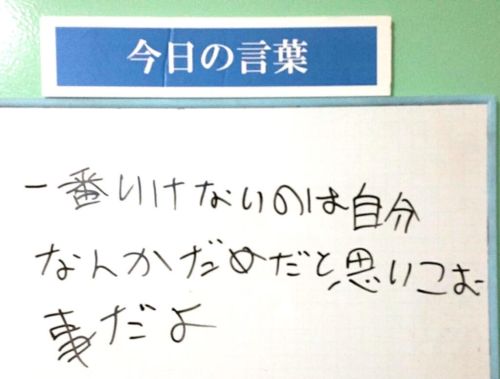 今日の言葉
一番いけないのは自分
なんかだめだと思いこむ
事だよ